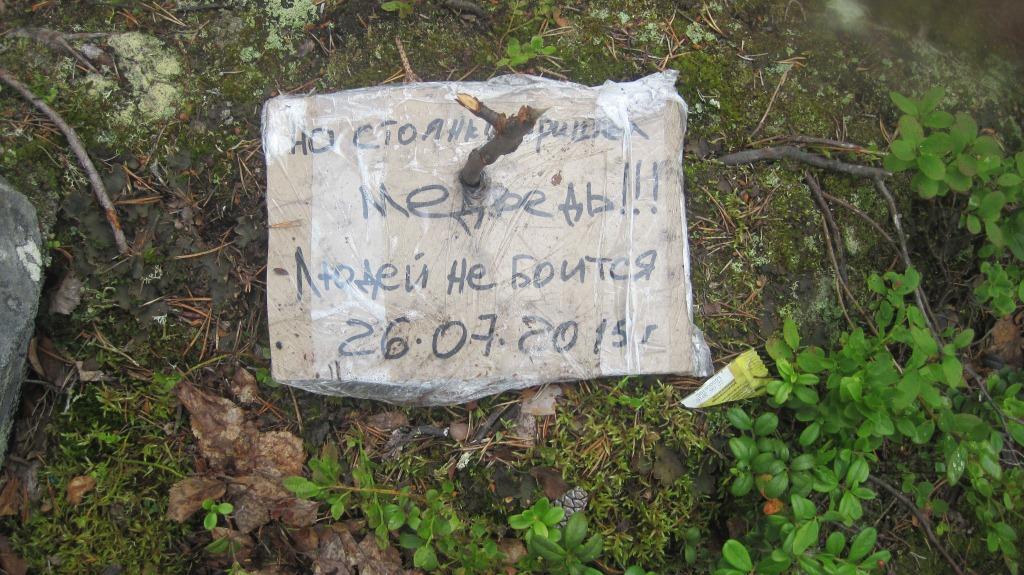 НА СТОЯНКЕ
МЕДВЕДЬ!!!
ЛЮДЕЙ НЕ БОИТСЯ
26.07.2015г